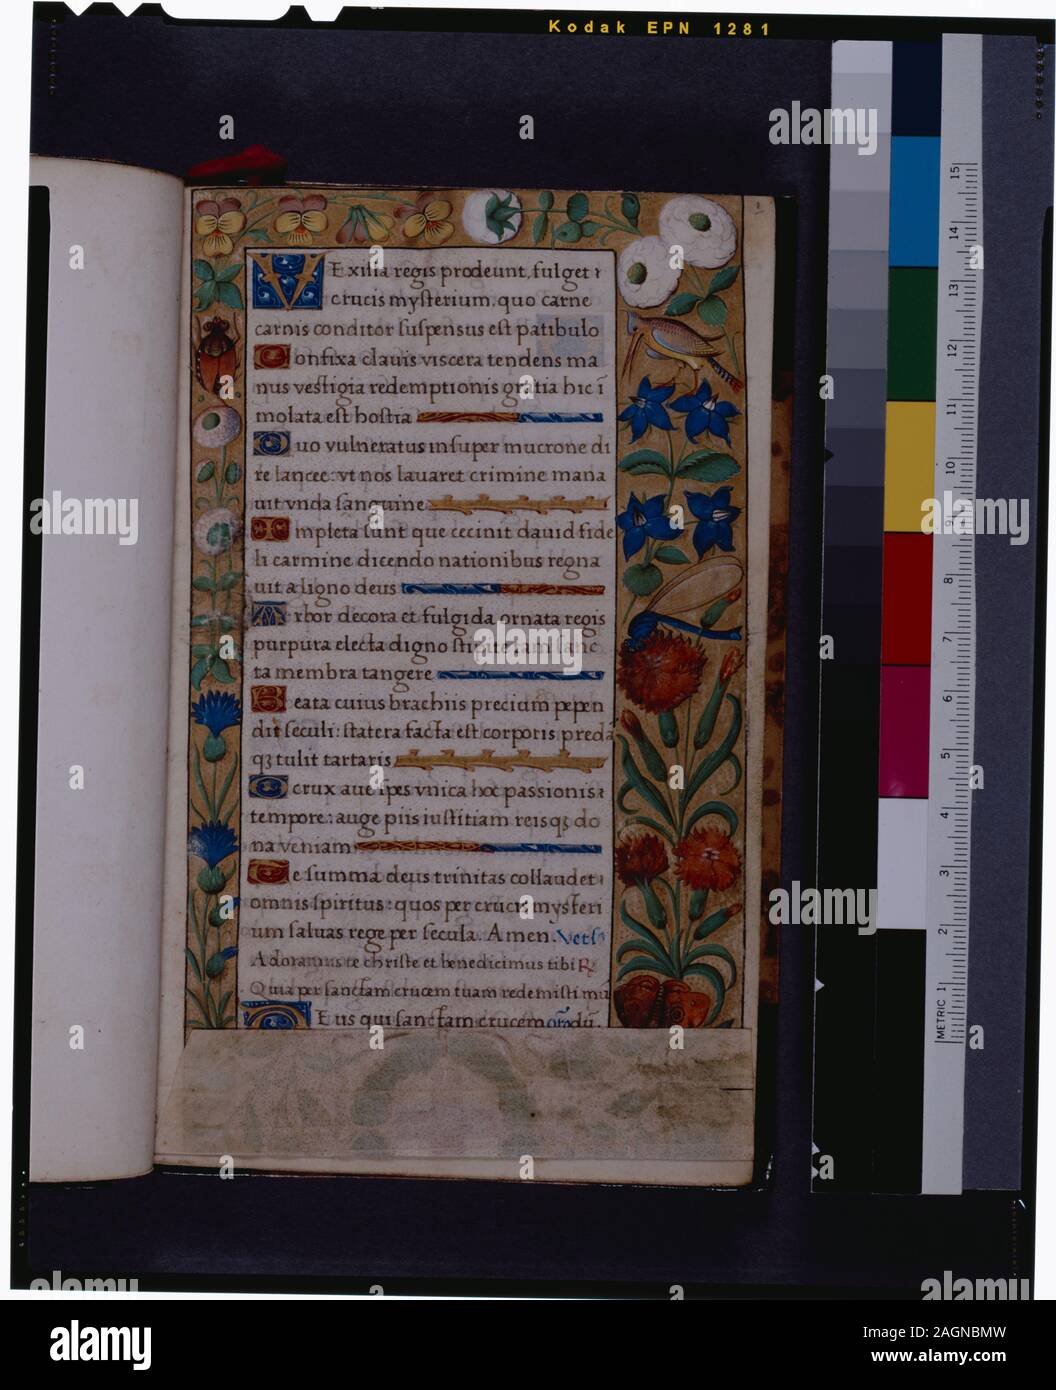 Kodak EPN 1281
VExilla regis prodeunt, fulget
crucis mysterium. quo carne
carnis conditor suspensus est patibulo
Confixa clauis viscera tendens ma
nus vestigia redemptionis gratia hic ī
molata est hostia
Quo vulneratus insuper mucrone di
re lancee: vt nos lauaret crimine mana
uit vnda sanguine
Impleta sunt que cecinit dauid fide
li carmine dicendo nationibus regna
uit a ligno deus
Arbor decora et fulgida ornata regis
purpura electa digno stipite tam sanc
ta membra tangere
Beata cuius brachiis precium pepen
dit seculi: statera facta est corporis predā
qꝫ tulit tartaris
O crux aue spes vnica hoc passionis
tempore: auge piis iustitiam reisqꝫ do
na veniam
Te summa deus trinitas collaudet
omnis spiritus: quos per crucis mysteri
um saluas rege per secula. Amen. Vers
Adoramus te christe et benedicimus tibi ℟
Quia per sanctam crucem tuam redemisti mū
DEus qui sanctam crucem
METRIC 1 2 3 4 5 6 7 8 9 10 11 12 13 14 15
alamy
alamy
Image ID: 2AGNBMW
www.alamy.com